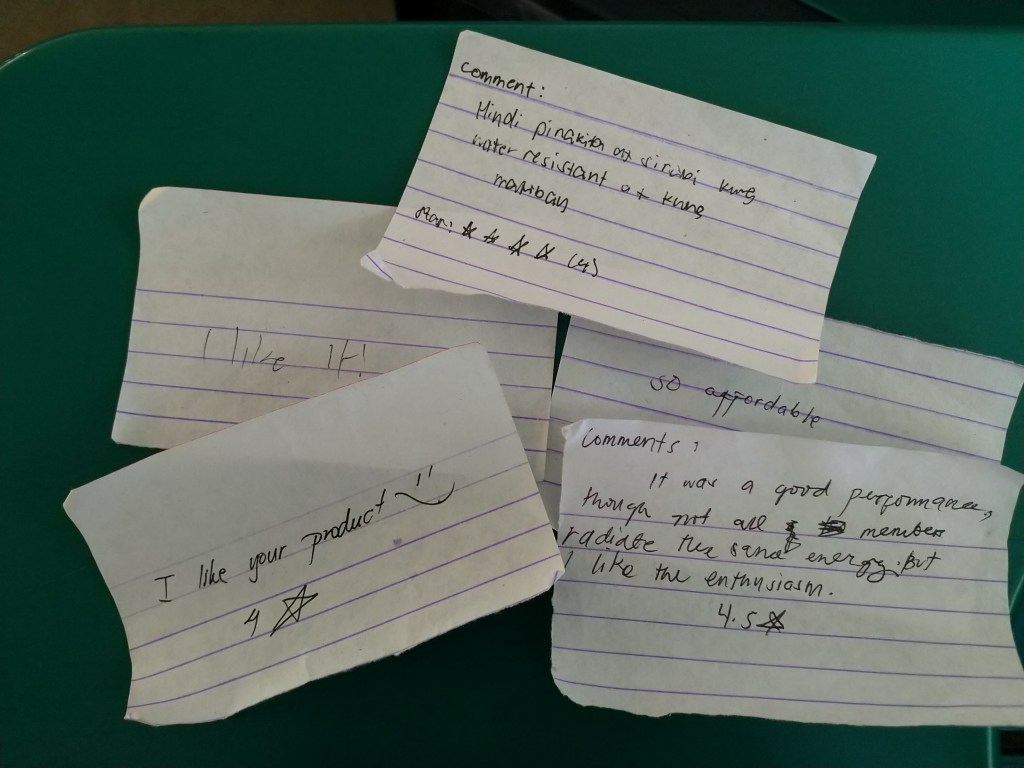 Comment:
Hindi pinakita at sinabi kung
water resistant at kung
matibay
star: ☆ ☆ ☆ ☆ (4)
I like It!
so affordable
I like your product
4 ☆
Comments:
It was a good performance,
though not all members
radiate the same energy. But
I like the enthusiasm.
4.5 ☆